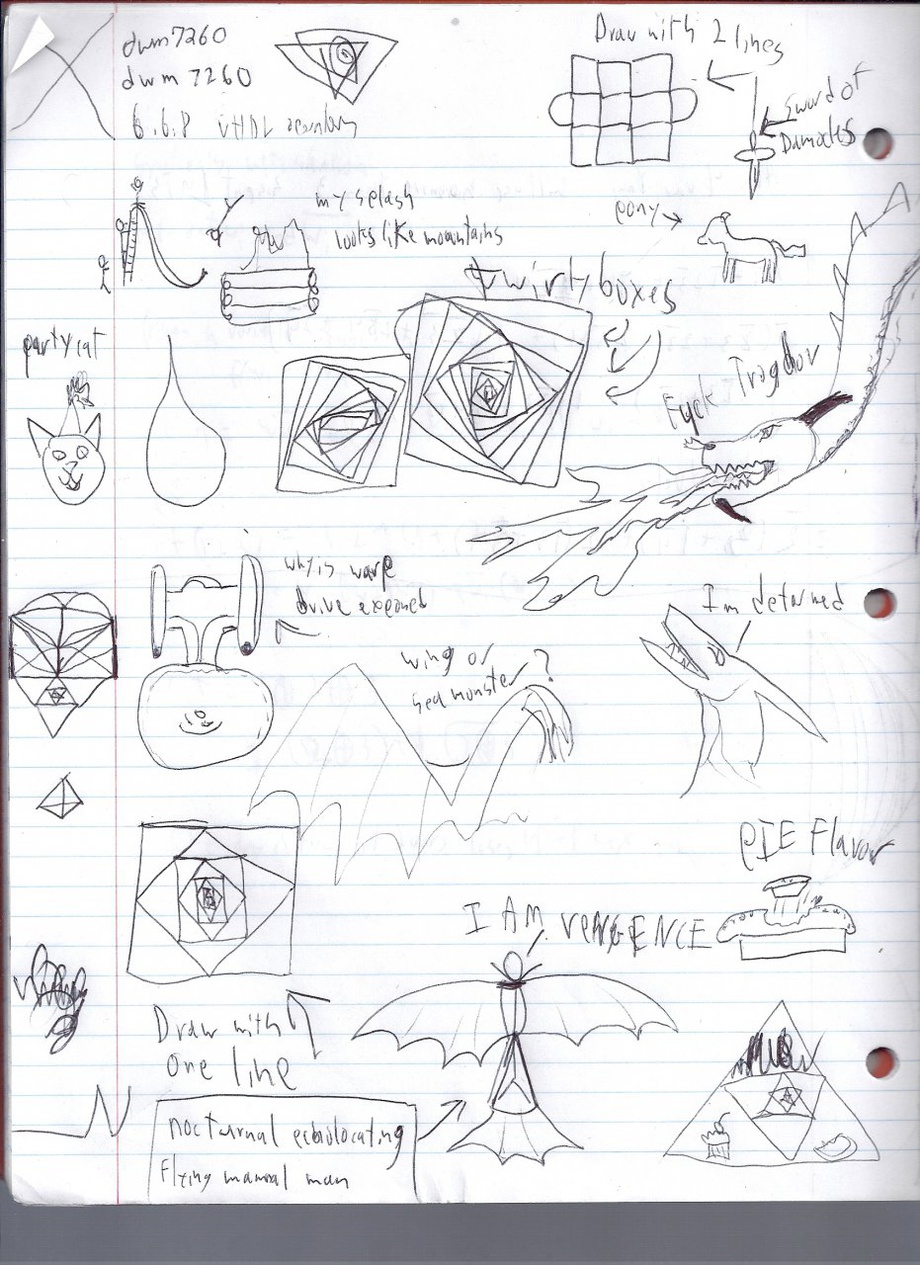 dwm7260
dwm 7260
6.6.8 VHDL
Draw with 2 lines
Sword of
Damocles
my splash
looks like mountains
pony
twirly boxes
party cat
Fuck Trogdor
why is warp
drive exposed
I'm detarned
wing or
sea monster?
PIE Flavor
I AM VENGENCE
Draw with
one line
nocturnal echolocating
Flying mammal man